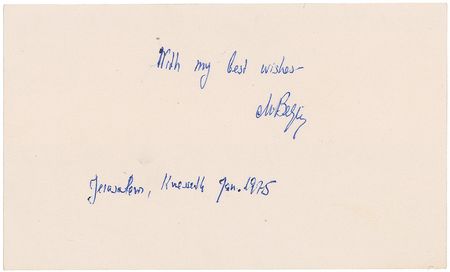 With my best wishes
M. Begin
Jerusalem, Knesseth Jan. 1975